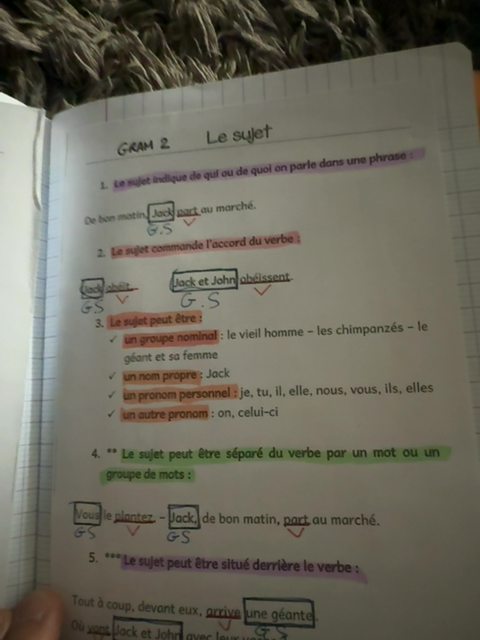 GRAM 2 Le sujet
1. Le sujet indique de qui ou de quoi on parle dans une phrase :
De bon matin, Jack part au marché.
G.S V
2. Le sujet commande l'accord du verbe :
Jack obéit. Jack et John obéissent.
G.S V G.S V
3. Le sujet peut être :
✓ un groupe nominal : le vieil homme – les chimpanzés – le
géant et sa femme
✓ un nom propre : Jack
✓ un pronom personnel : je, tu, il, elle, nous, vous, ils, elles
✓ un autre pronom : on, celui-ci
4. ** Le sujet peut être séparé du verbe par un mot ou un
groupe de mots :
Vous le plantez. – Jack, de bon matin, part au marché.
GS V GS V
5. ***Le sujet peut être situé derrière le verbe :
Tout à coup, devant eux, arrive une géante.
V G.S
Où vont Jack et John avec leur